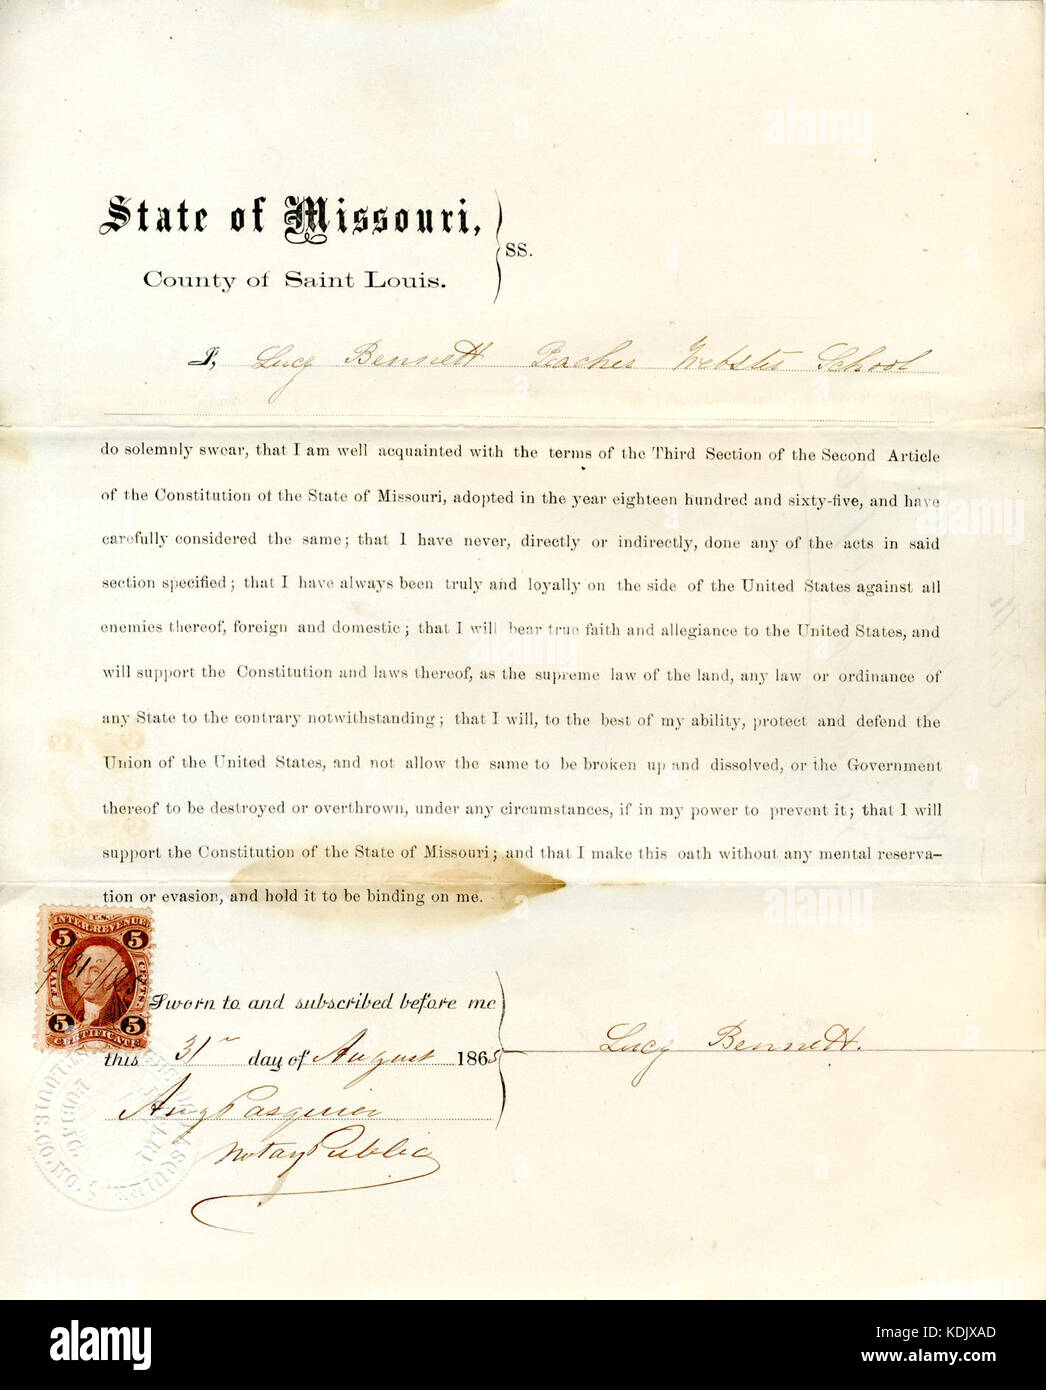 State of Missouri,
County of Saint Louis.
SS.
I, Lucy Bennett Teacher Webster School
do solemnly swear, that I am well acquainted with the terms of the Third Section of the Second Article
of the Constitution of the State of Missouri, adopted in the year eighteen hundred and sixty-five, and have
carefully considered the same; that I have never, directly or indirectly, done any of the acts in said
section specified; that I have always been truly and loyally on the side of the United States against all
enemies thereof, foreign and domestic; that I will bear true faith and allegiance to the United States, and
will support the Constitution and laws thereof, as the supreme law of the land, any law or ordinance of
any State to the contrary notwithstanding; that I will, to the best of my ability, protect and defend the
Union of the United States, and not allow the same to be broken up and dissolved, or the Government
thereof to be destroyed or overthrown, under any circumstances, if in my power to prevent it; that I will
support the Constitution of the State of Missouri; and that I make this oath without any mental reserva-
tion or evasion, and hold it to be binding on me.
5 U.S. 5
INTER. REVENUE
FIVE CENTS.
31/1865
5 5
CERTIFICATE
Sworn to and subscribed before me
this 31 day of August 1865
Lucy Bennett.
Aug Pasquier
Notary Public
alamy
a
alamy
Image ID: KDJXAD
www.alamy.com